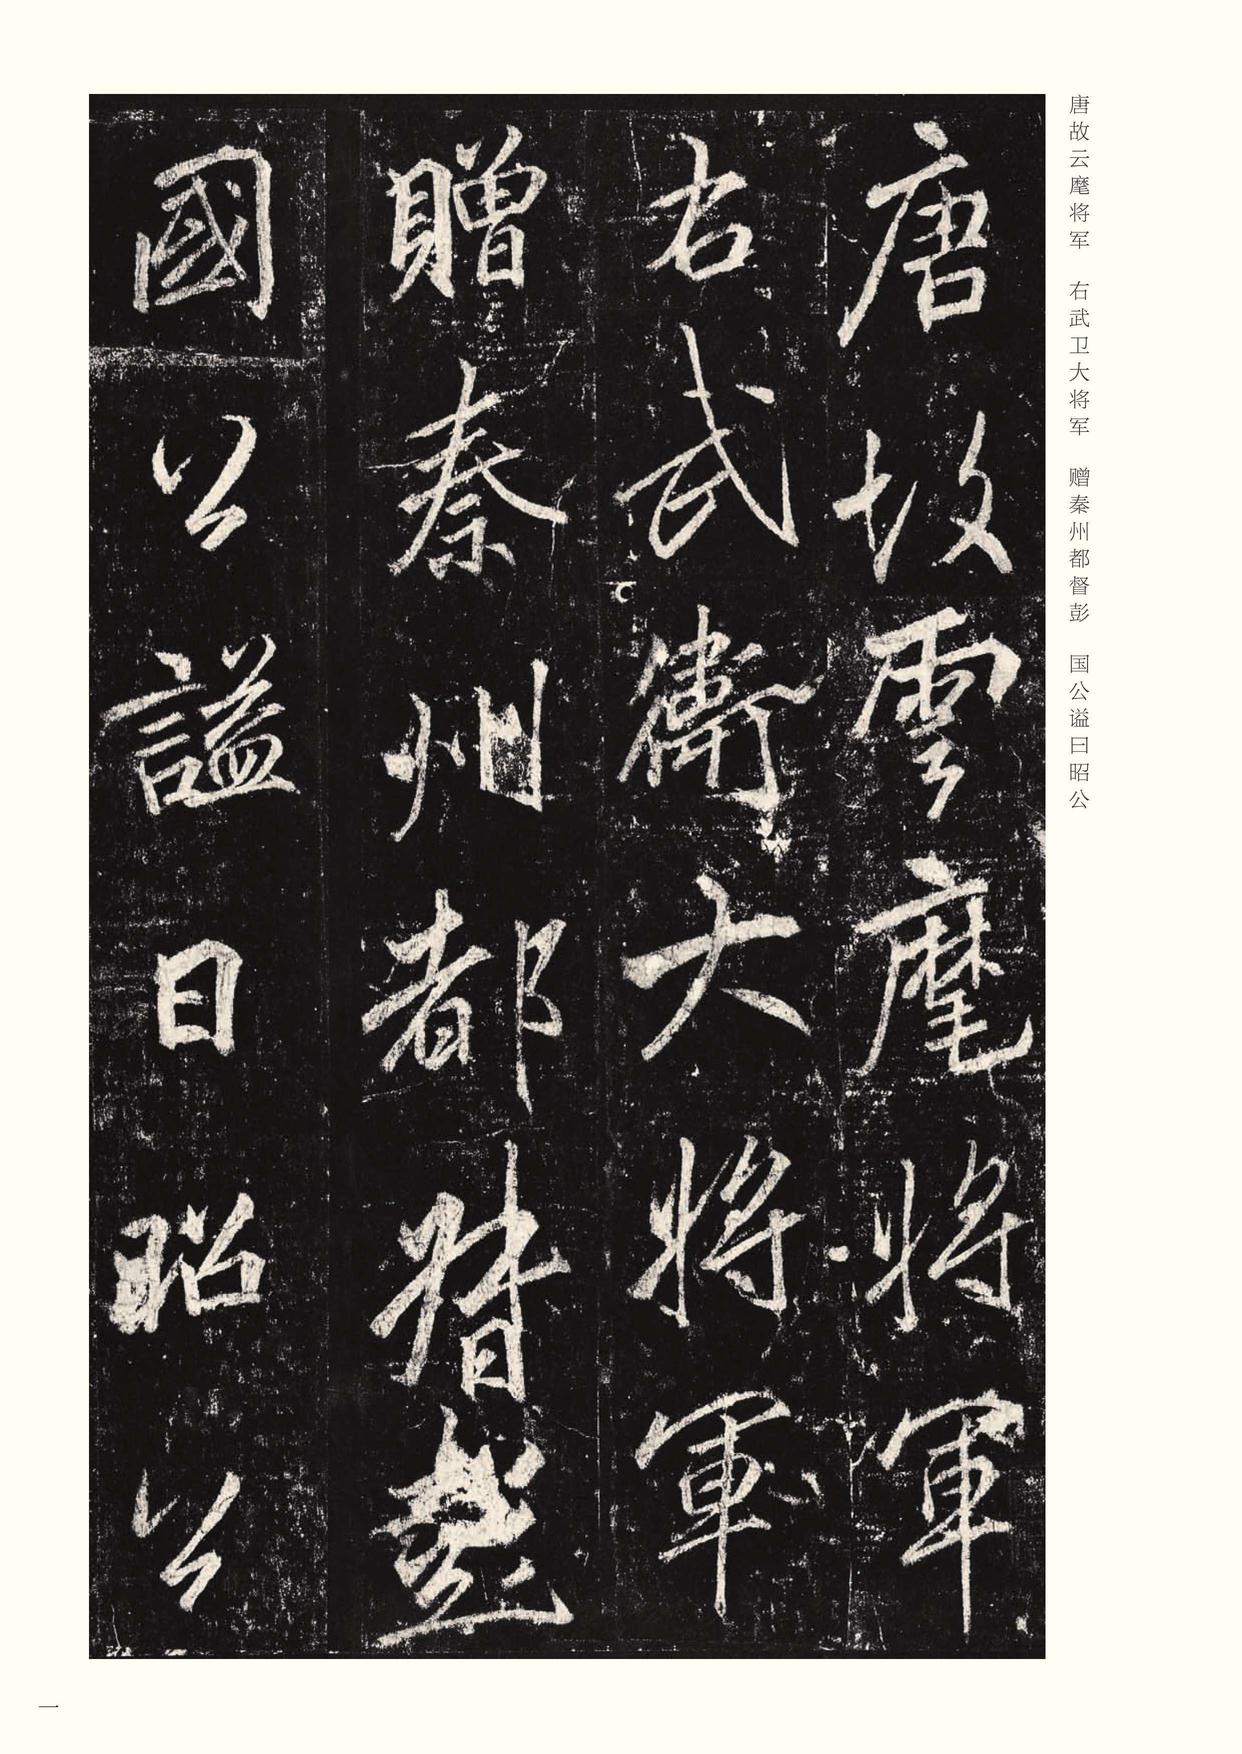 唐故云麾将军　右武卫大将军　赠秦州都督彭　国公谥曰昭公
唐故雲麾將軍
右武衛大將軍
贈秦州都督彭
國公謚曰昭公
一